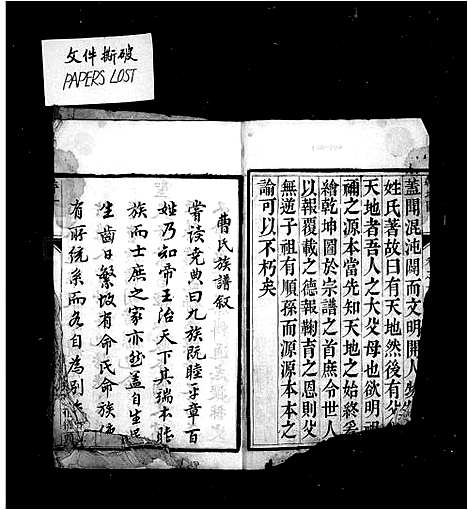 文件撕破
PAPERS LOST
蓋聞混沌闢而文明開人
姓氏著故曰有天地然後有
天地者吾人之大父母也欲明
禰之源本當先知天地之始終
繪乾坤圖於宗譜之首庶令世人
以報覆載之德報鞠育之恩則父
無逆子祖有順孫而源源本本之
諭可以不朽矣
曹氏族譜叙
嘗读尭典曰九族既睦平章百
姓乃知帝王治天下其瑞本睦
族而士庶之家亦然蓋自生民
生齒日繁故有命氏命族
有所統系而各自為別